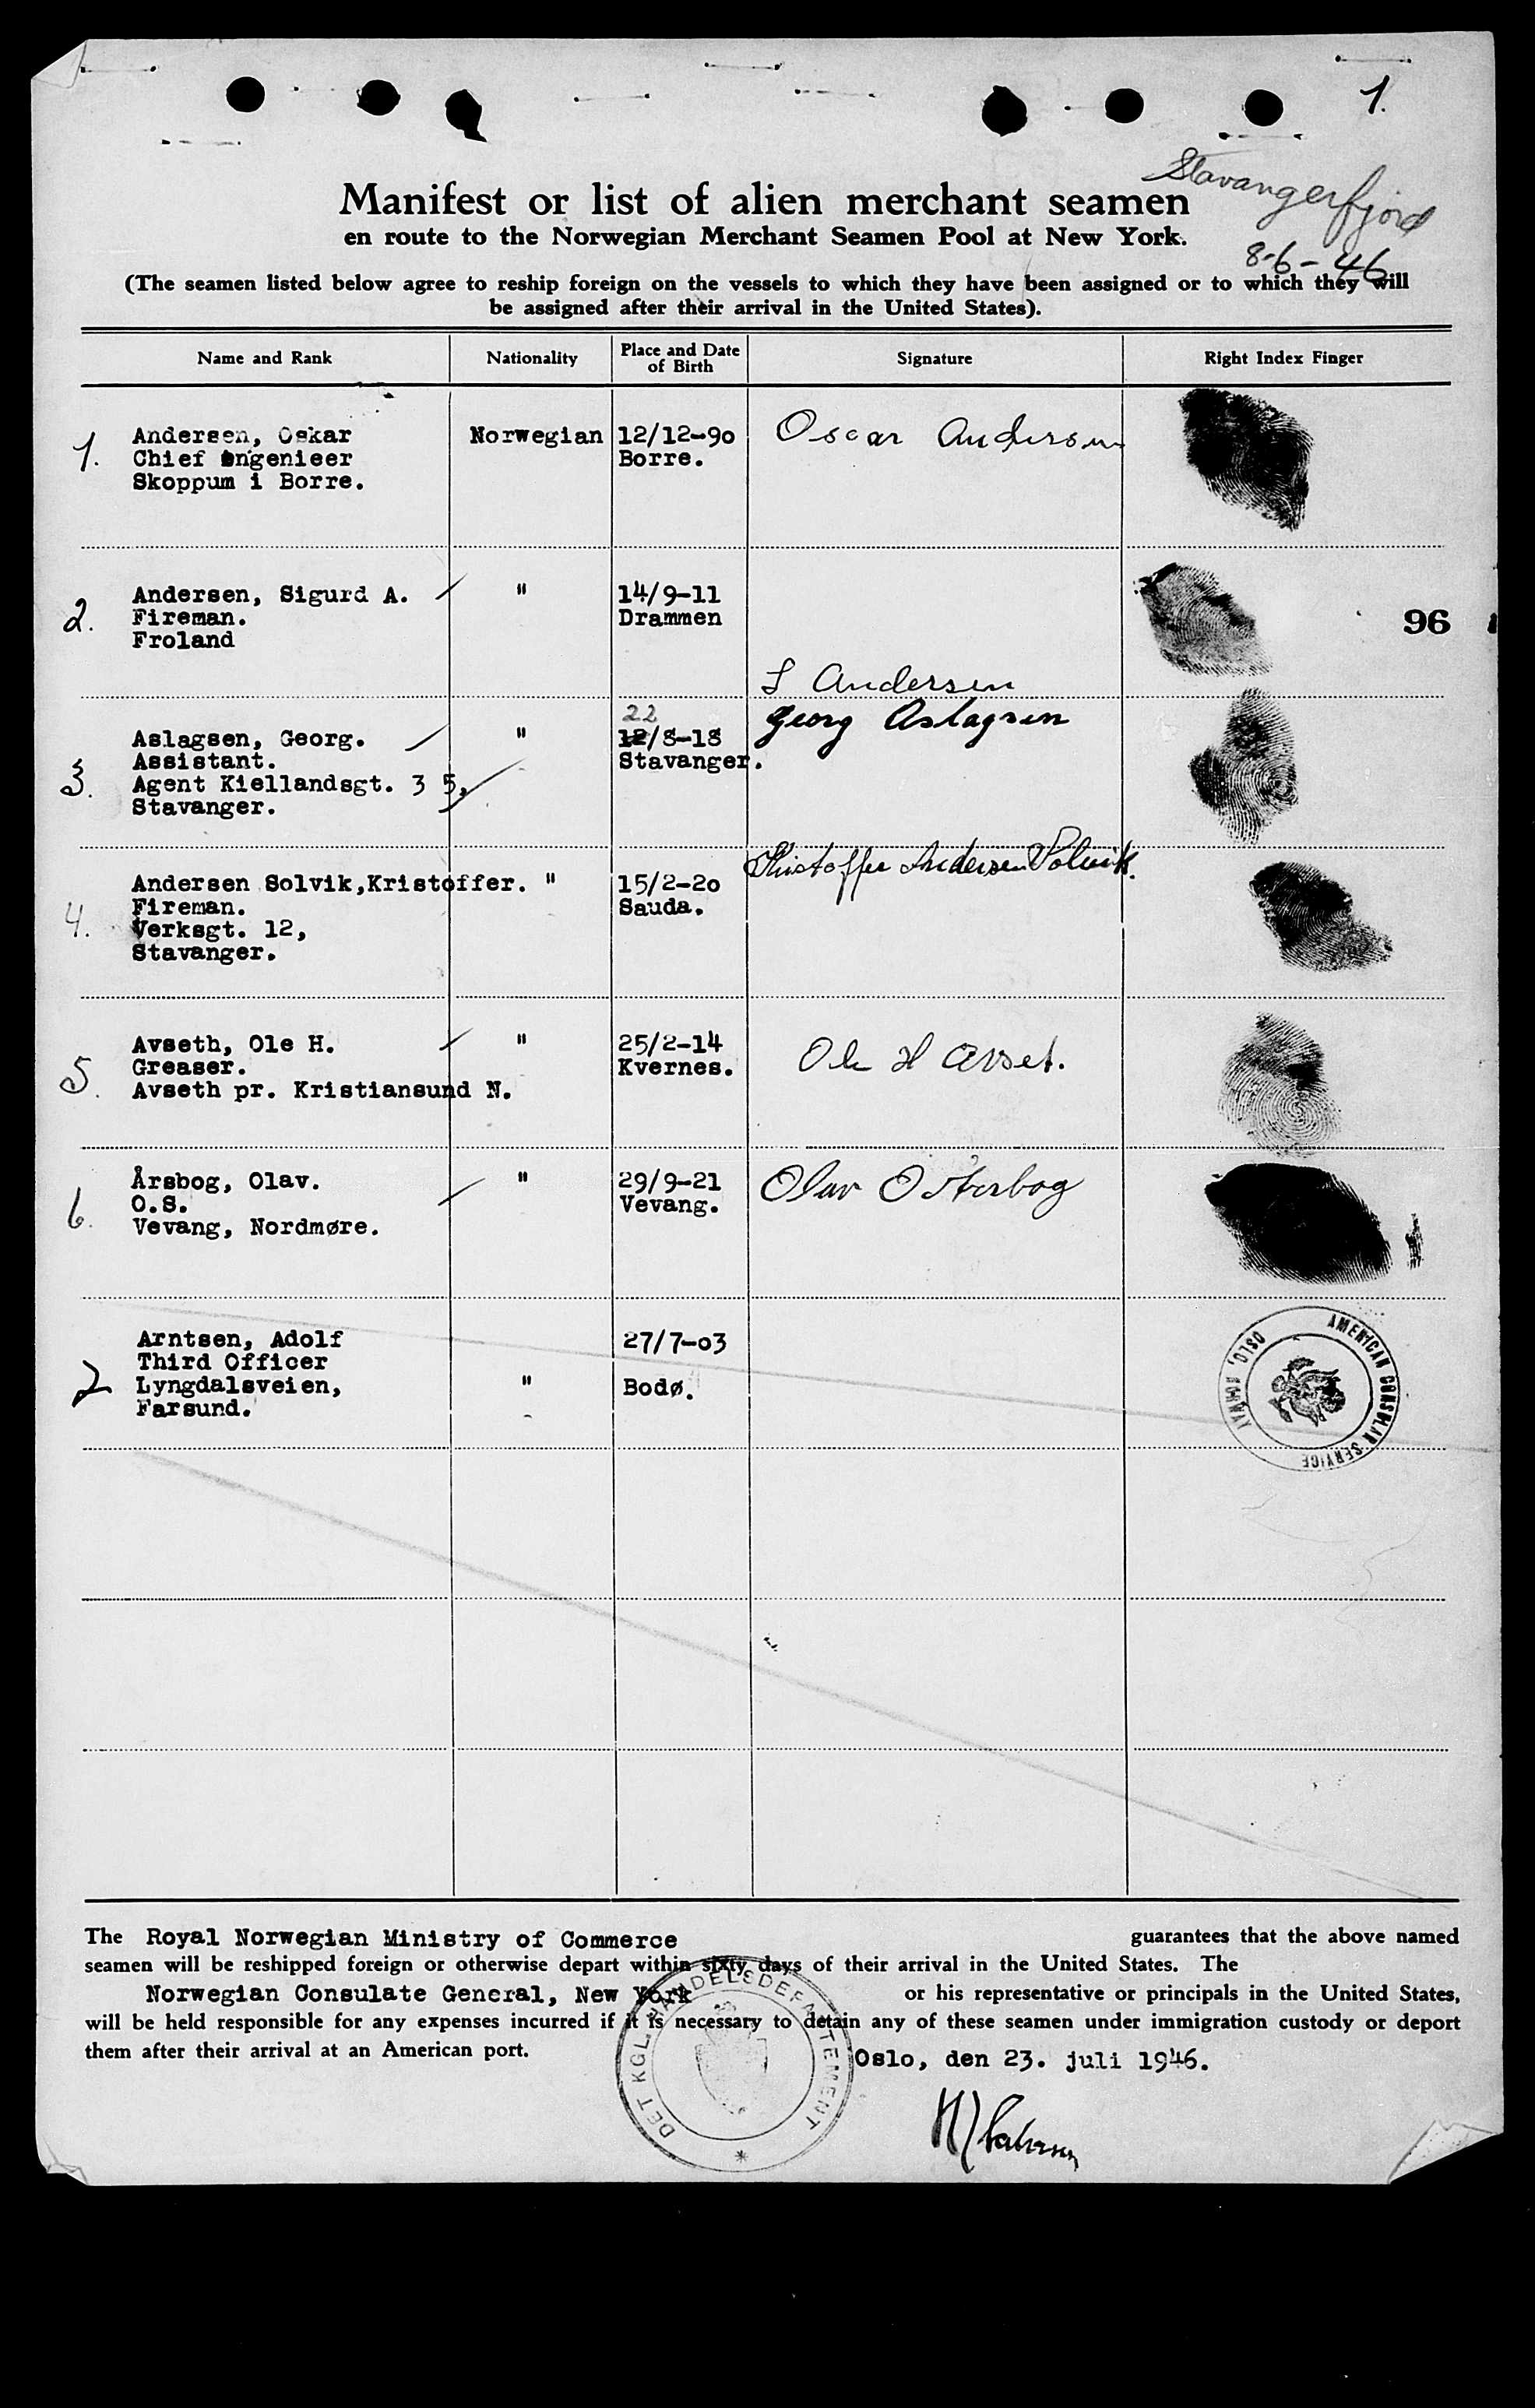 1.
Stavangerfjord
8-6-46
Manifest or list of alien merchant seamen
en route to the Norwegian Merchant Seamen Pool at New York.
(The seamen listed below agree to reship foreign on the vessels to which they have been assigned or to which they will
be assigned after their arrival in the United States).
Name and Rank Nationality Place and Date of Birth Signature Right Index Finger
1. Andersen, Oskar Norwegian 12/12-90 Oscar Andersen
Chief engenieer Borre.
Skoppum i Borre.
2. Andersen, Sigurd A. " 14/9-11
Fireman. Drammen
Froland
96
S Andersen
22
3. Aslagsen, Georg. " 12/8-18 Georg Aslagsen
Assistant. Stavanger.
Agent Kiellandsgt. 3 5,
Stavanger.
Kristoffer Andersen Solvik.
4. Andersen Solvik,Kristoffer. " 15/2-20
Fireman. Sauda.
Verksgt. 12,
Stavanger.
5. Avseth, Ole H. " 25/2-14 Ole H Avset.
Greaser. Kvernes.
Avseth pr. Kristiansund N.
6. Årsbog, Olav. " 29/9-21 Olav Osterbog
O.S. Vevang.
Vevang, Nordmøre.
2 Arntsen, Adolf 27/7-03
Third Officer
Lyngdalsveien, " Bodø.
Farsund.
AMERICAN CONSULAR SERVICE
OSLO, NORWAY
The Royal Norwegian Ministry of Commerce guarantees that the above named
seamen will be reshipped foreign or otherwise depart within sixty days of their arrival in the United States. The
Norwegian Consulate General, New York or his representative or principals in the United States,
will be held responsible for any expenses incurred if it is necessary to detain any of these seamen under immigration custody or deport
them after their arrival at an American port.
Oslo, den 23. juli 1946.
DET KGL. HANDELSDEPARTEMENT